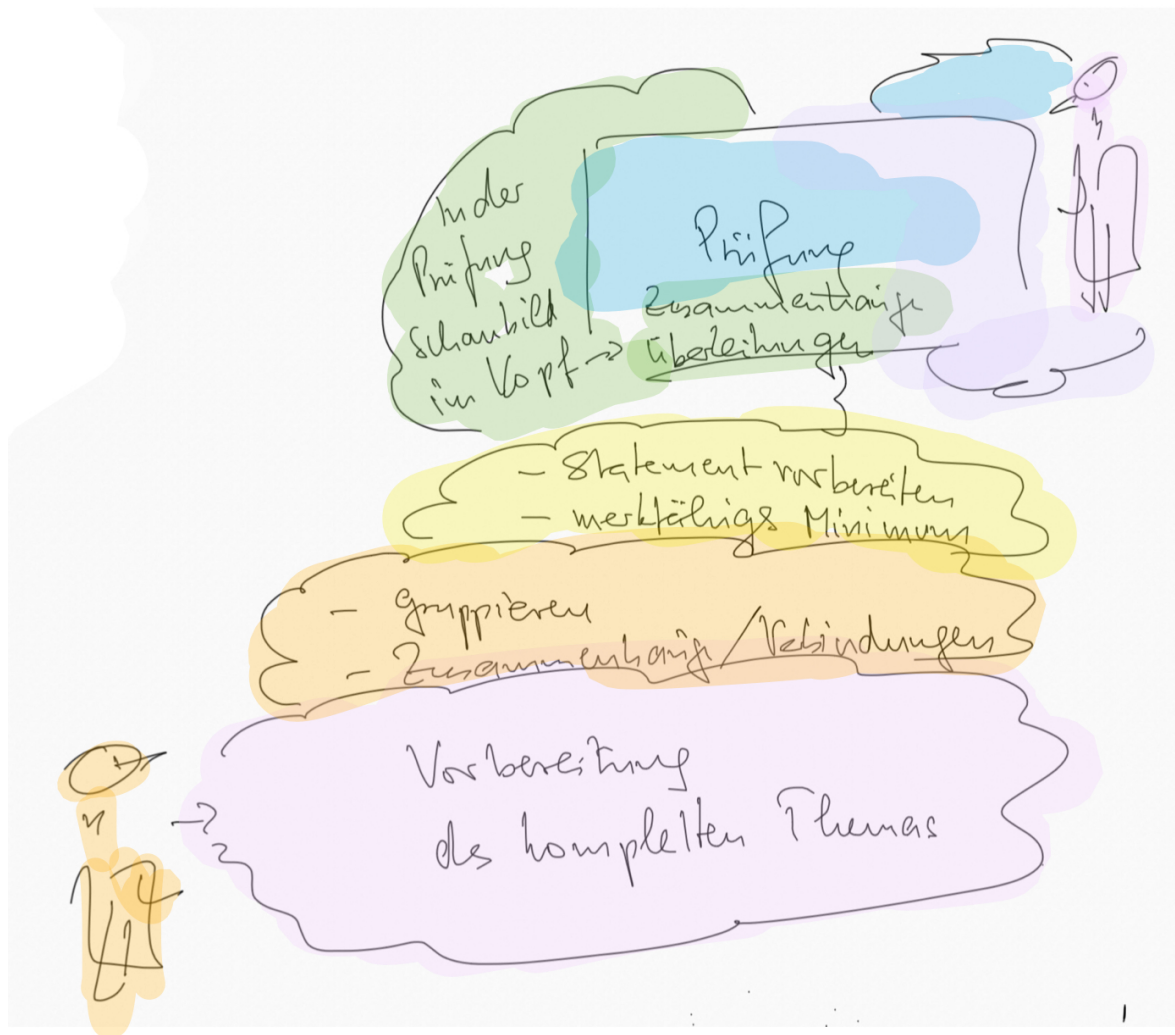 In der
Prüfung
Schaubild
im Kopf →
Prüfung
Zusammenhänge
Überleitungen
- Statement vorbereiten
- merkfähigs Minimum
- gruppieren
- Zusammenhänge/Verbindungen
Vorbereitung
des kompletten Themas